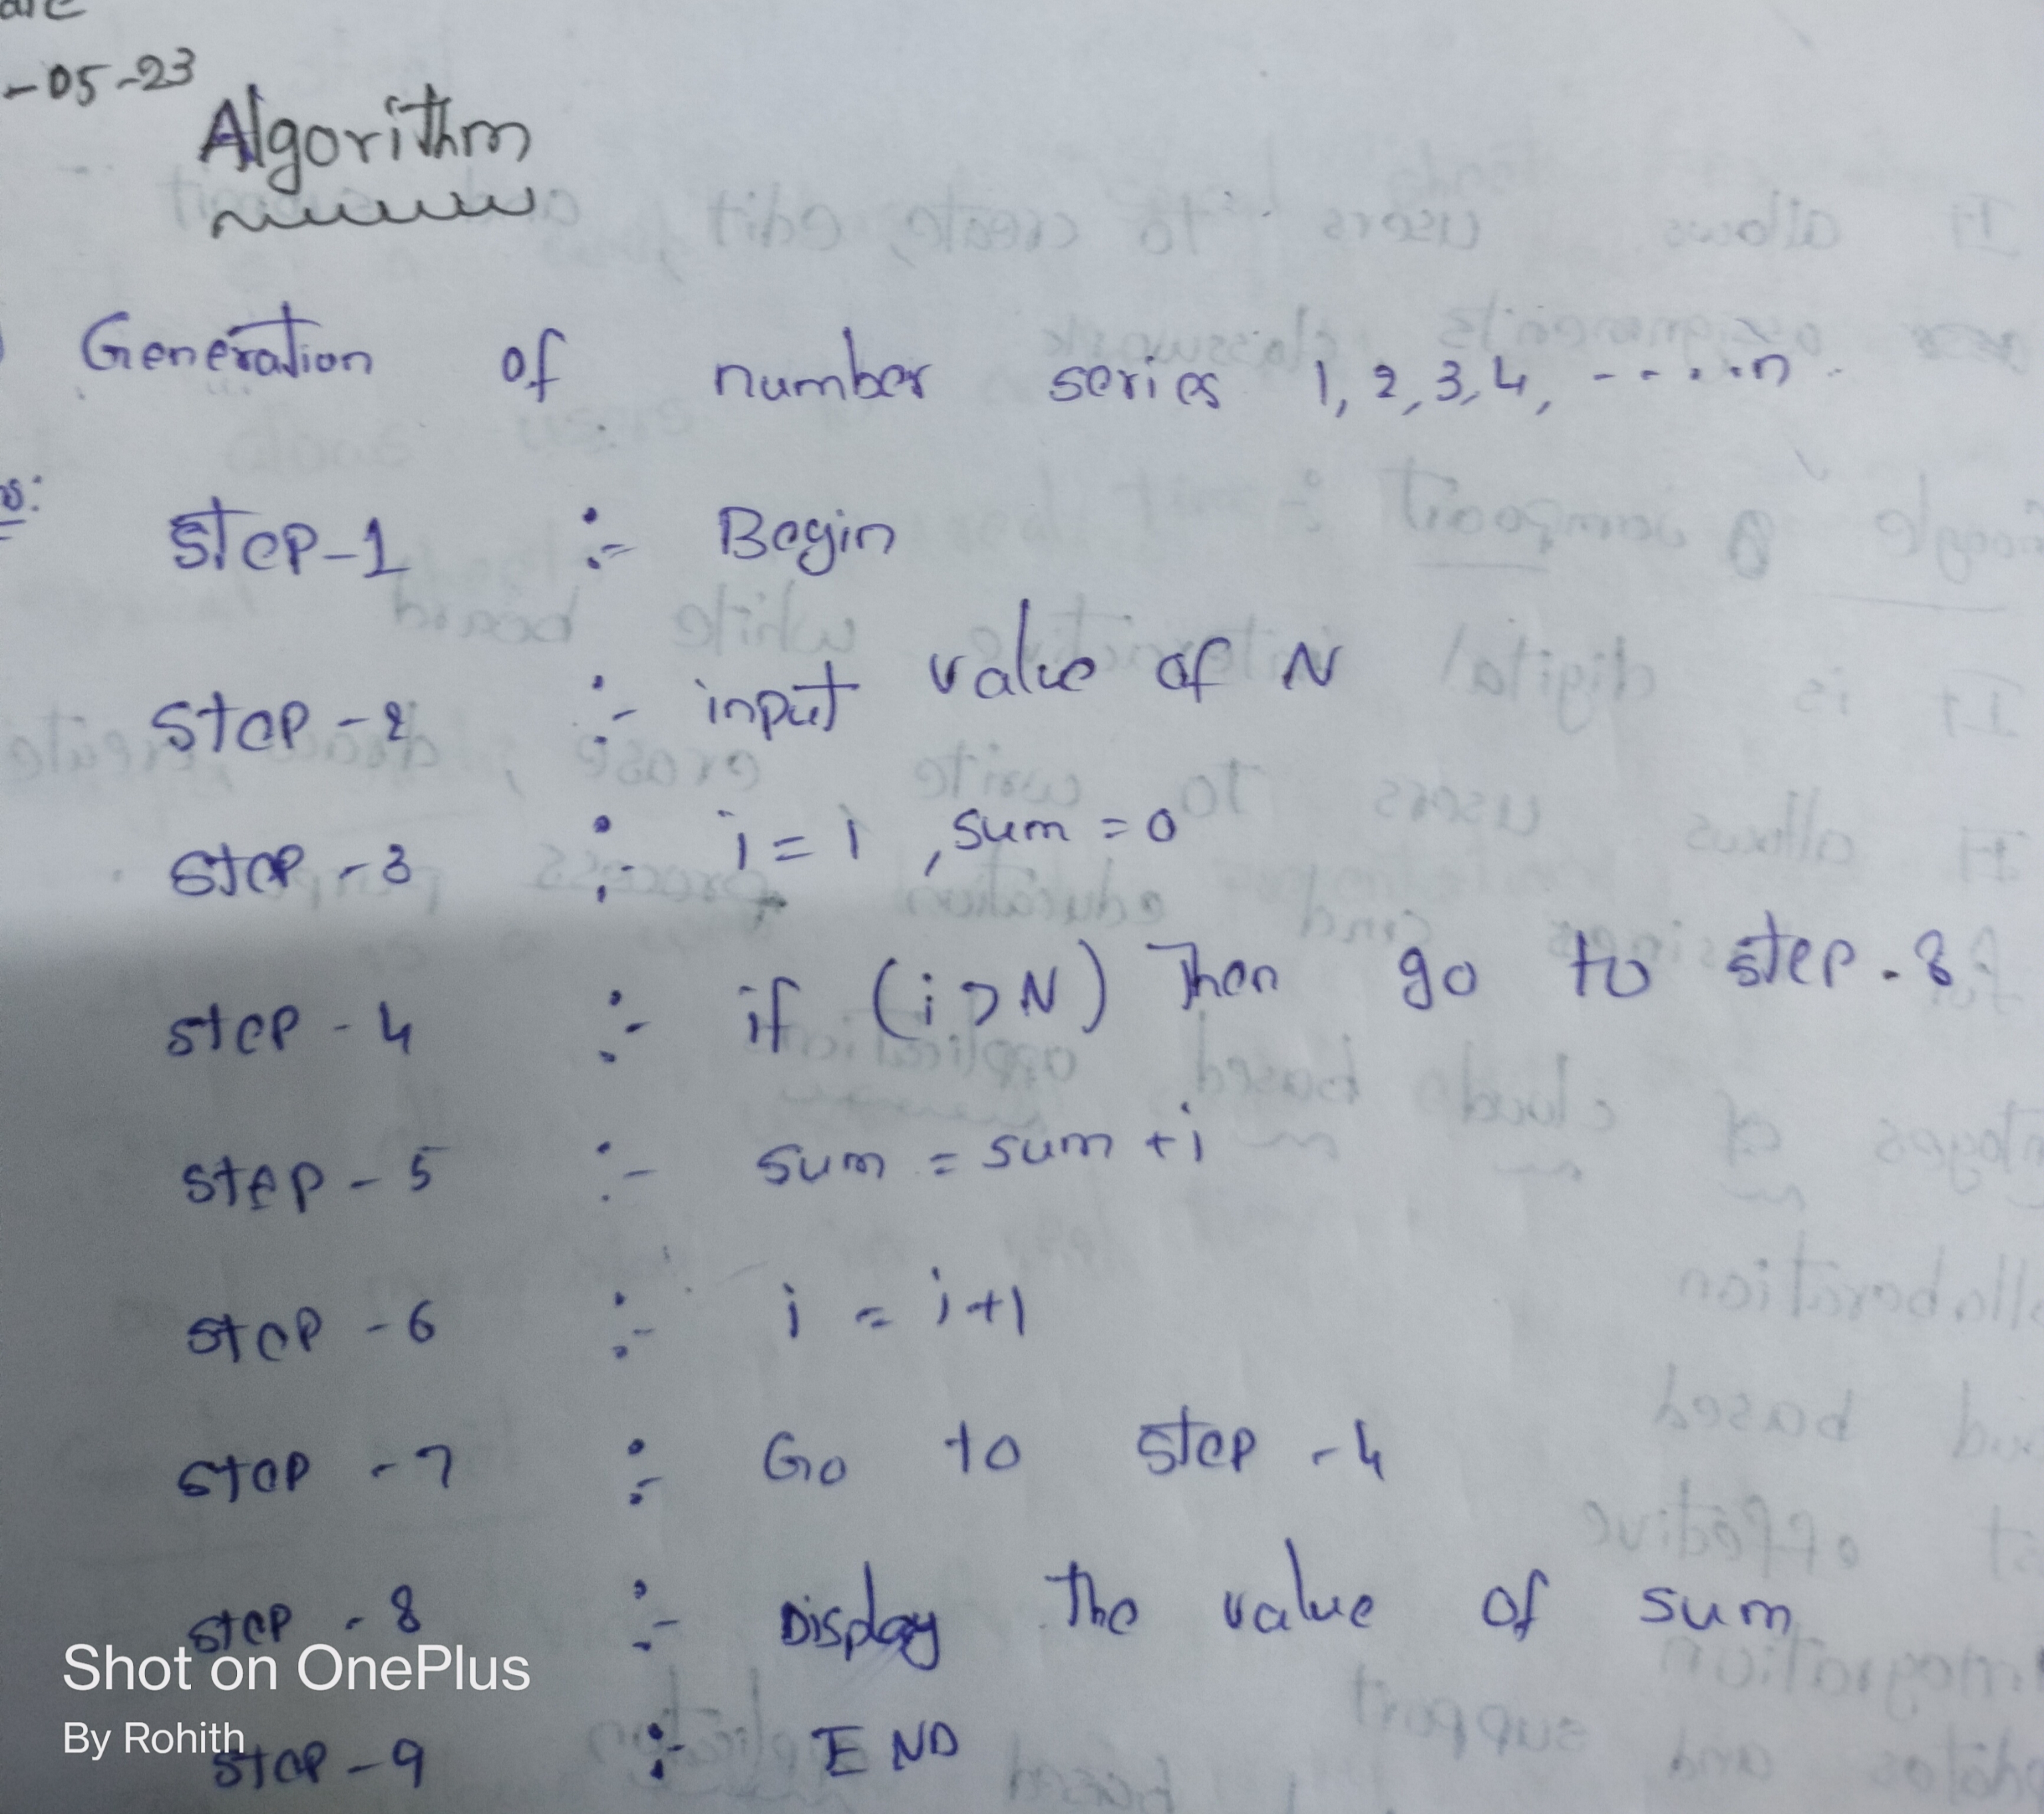 -05-23
Algorithm
Generation of number series 1, 2, 3, 4, - - . . . n
s:
Step-1 :- Begin
Step-2 :- input value of N
Step-3 :- i = 1, sum = 0
Step-4 :- if (i > N) Then go to step-8
Step-5 :- sum = sum + i
Step-6 :- i = i+1
Step-7 :- Go to step-4
Step-8 :- Display the value of sum
Shot on OnePlus
By Rohith
Step-9 :- END